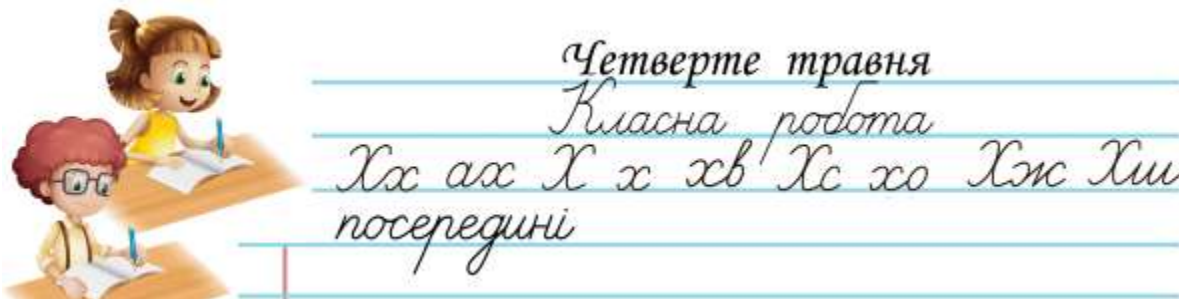 Четверте травня
Класна робота
Хх ах Х х хв Хс хо Хж Хш
посередині